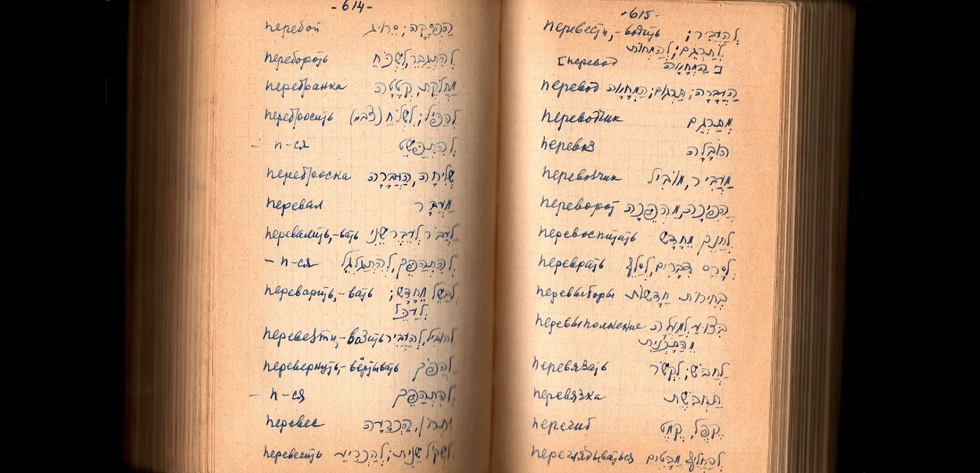 -614-
перебой הַפְסָקָה; סֵרוּג
перебороть לְהִתְגַבֵּר, לִשְׁכֹּחַ
перебранка מַחֲלֹקֶת, קְטָטָה
перебросить לְהַפִּיל; לִשְׁלֹחַ (צבא)
- п-ся לְהִתְפַּשֵּׁט
переброска שְׁלִיחָה, הַעֲבָרָה
перевал מַעֲבָר
перевалить,-вать לַעֲבֹר לְעֵבֶר שֵׁנִי
- п-ся לְהִתְהַפֵּךְ, לְהִתְגַּלְגֵּל
переварить,-вать לְבַשֵּׁל מֵחָדָשׁ;
לְעַכֵּל
перевезти,-возить לְהוֹבִיל, לְהַעֲבִיר
перевернуть,-вёртывать לַהֲפֹךְ
- п-ся לְהִתְהַפֵּךְ
перевес יִתְרוֹן, הַכְרָעָה
перевесить לִשְׁקֹל שֵׁנִית; לְהַכְרִיעַ
-615-
перевести,-водить לְהַעֲבִיר;
לְתַרְגֵּם; לְהַמְחוֹת
[перевод הַמְחָאָה
перевод הַעֲבָרָה; תַּרְגּוּם; הַמְחָאָה
переводчик מְתַרְגֵּם
перевоз הוֹבָלָה
перевозчик מַעֲבִיר, מוֹבִיל
переворот הֲפִיכָה, מַהְפֵּכָה
перевоспитать לְחַנֵּךְ מֵחָדָשׁ
переврать לְסָרֵס דְּבָרִים, לְסַלֵּף
перевыборы בְּחִירוֹת חֲדָשׁוֹת
перевыполнение בִּצּוּעַ לְמַעְלָה
מֵהַתָּכְנִית
перевязать לַחֲבֹשׁ; לִקְשֹׁר
перевязка תַּחְבֹּשֶׁת
перегиб קֶפֶל, קֶמֶט
переглядываться לְהַחֲלִיף מַבָּטִים